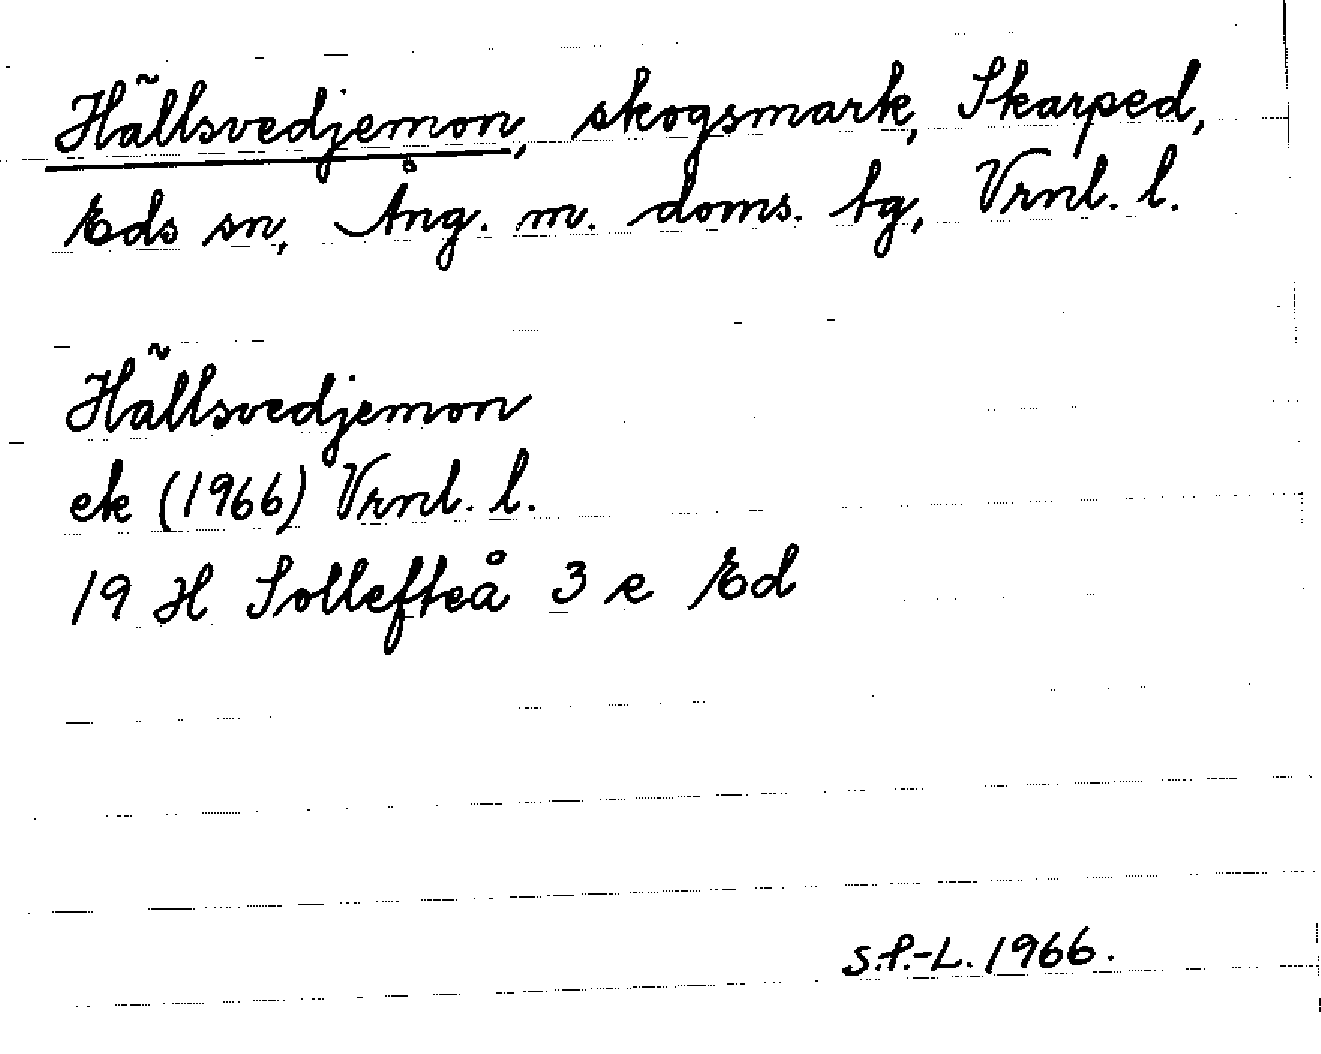 Hällsvedjemon, skogsmark, Skarped,
Eds sn, Ång. m. doms. tg, Vrnl. l.
Hällsvedjemon
ek (1966) Vrnl. l.
19 H Sollefteå 3 e Ed
S.P.-L. 1966.